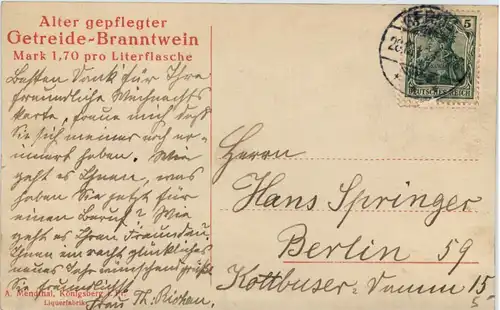 Alter gepflegter
Getreide-Branntwein
Mark 1,70 pro Literflasche
Besten Dank für Ihre
freundliche Weihnachts
karte, freue mich daß
Sie sich meiner noch er-
innert haben. Wie
geht es Ihnen, was
haben Sie jetzt für
einen Beruf? Wie
geht es Ihren
Ihnen ein recht glückliches
neues Jahr wünschend grüßt
Sie freundlichst
Frau Th.
A. Menthal, Königsberg i. Pr.
Liquerfabrik
5
DEUTSCHES REICH
Herrn
Hans Springer
Berlin 59
Kottbuser-Damm 15